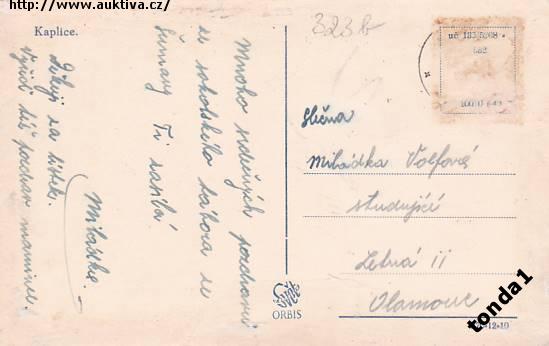 http://www.auktiva.cz/
Kaplice.
323b
uč 183 5268
682
Mnoho srdečných pozdravů
ze sokolského tábora ze
Šumavy Ti zasílá
Miladka.
Děkuji za lístek.
Vyřiď též pozdrav mamince!
Slečna
Miládka Volfová
studující
Letná II
Olomouc
Svět
ORBIS
12-10
tonda1